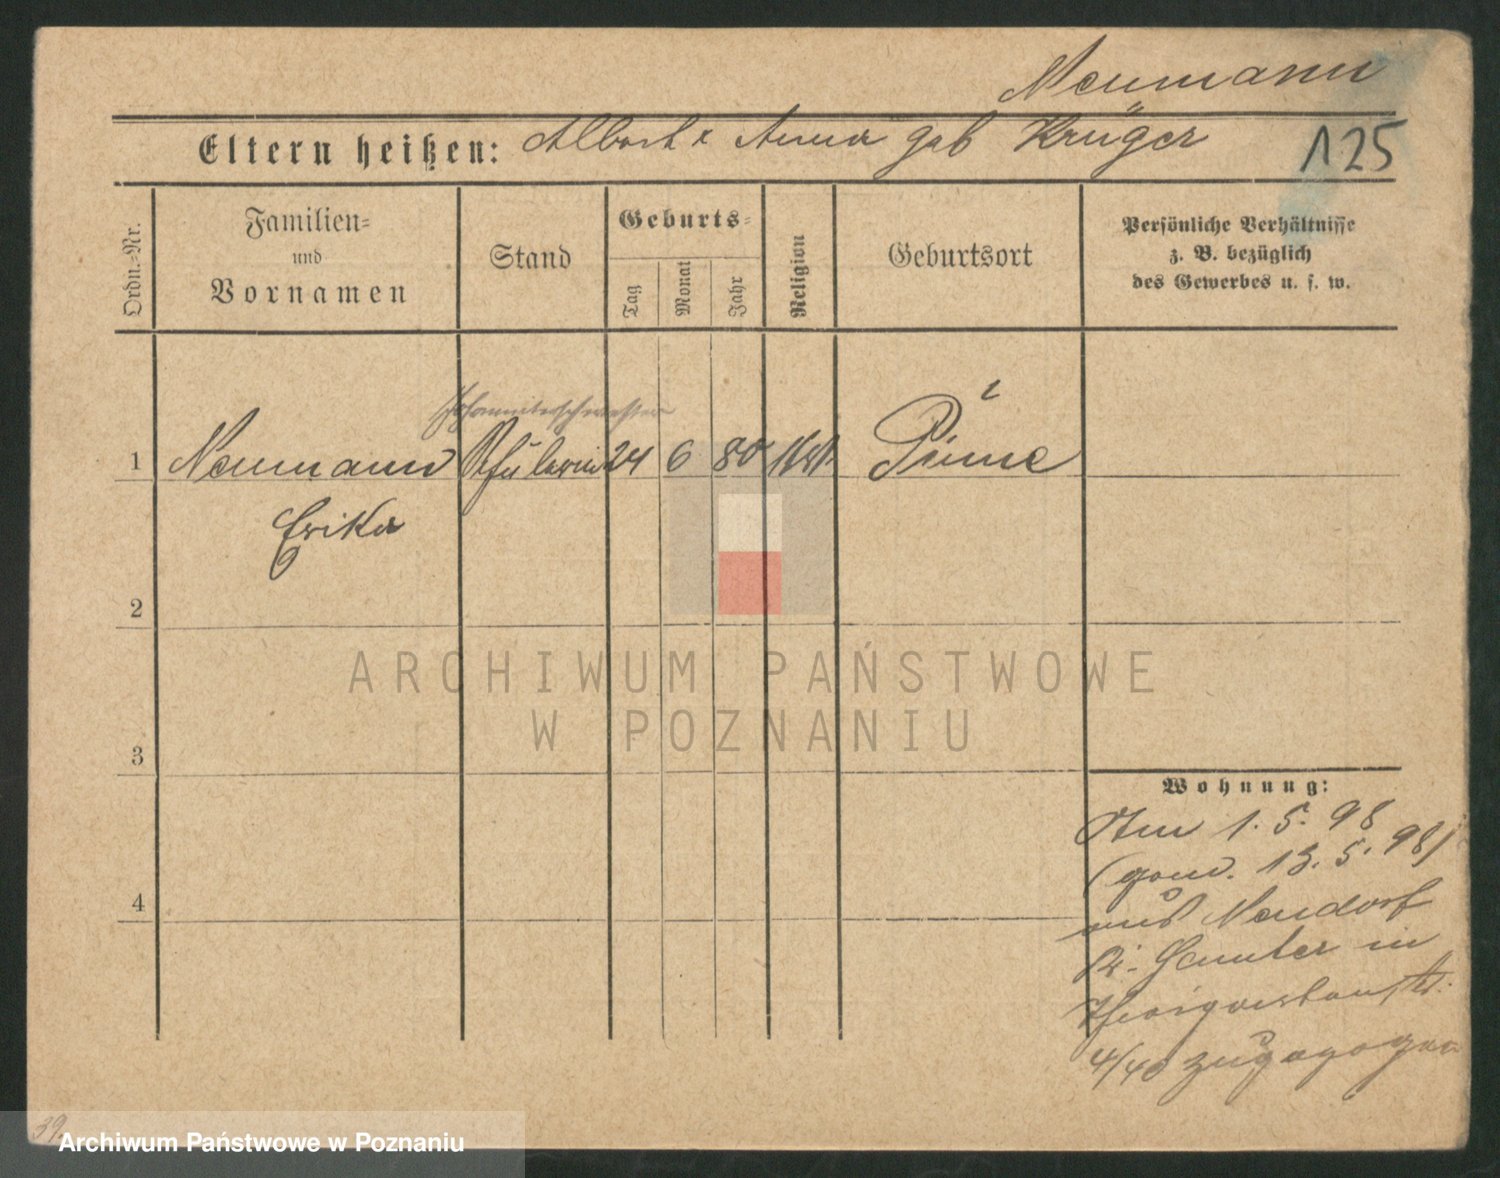 Neumann
Eltern heißen: Albert & Anna geb Krüger
125
Ordn.-Nr.
Familien-
und
Vornamen
Stand
Geburts-
Tag
Monat
Jahr
Religion
Geburtsort
Persönliche Verhältnisse
z. B. bezüglich
des Gewerbes u. s. w.
Johanniterschwester
1 Neumann Schülerin 24 6 80 Pinne
Erika
2
ARCHIWUM PAŃSTWOWE
W POZNANIU
3
Wohnung:
Am 1. 5. 98
(gem. 13. 5. 98)
aus Neudorf
in
4/40 zugezogen
4
39
Archiwum Państwowe w Poznaniu